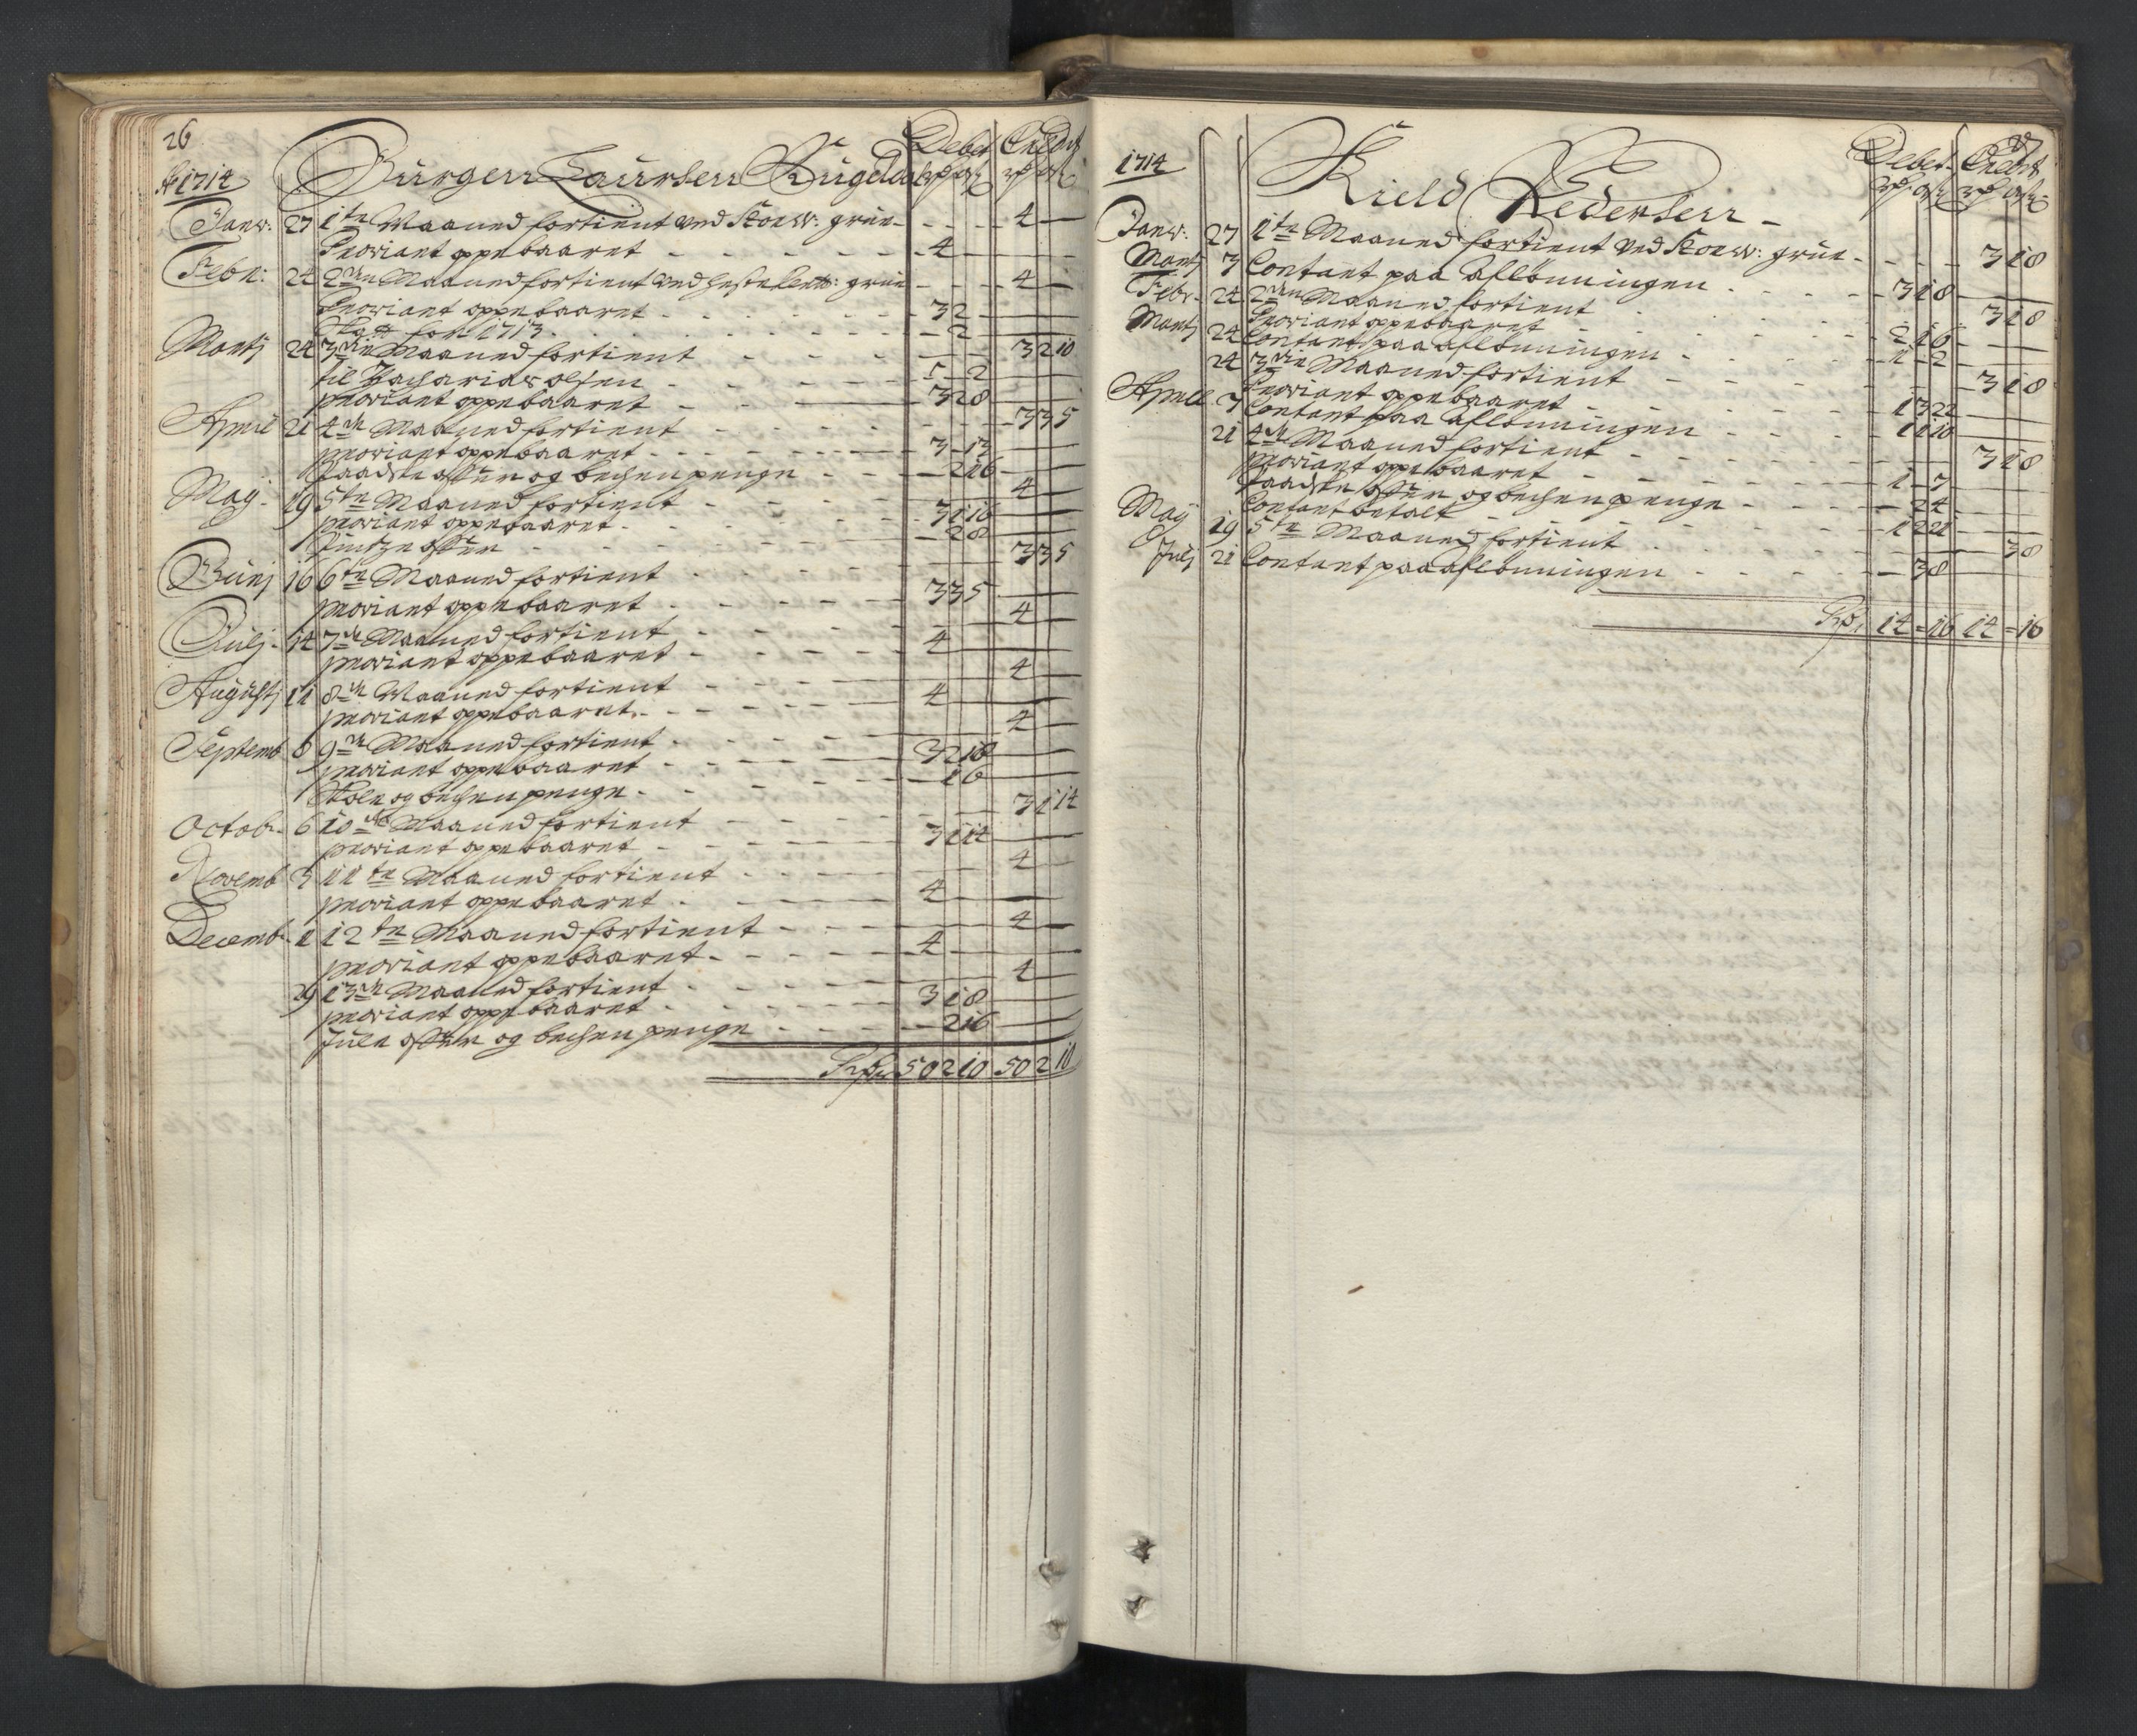 26
Ao 1714 Jürgen Laürsen Kügela Debet Credit
Janv: 27 1te Maaned fortient ved Stoew: grüe - 4 -
Proviant oppebaaret - 4 -
Febr: 24 2den Maaned fortient ved grüe - 4 -
Proviant oppebaaret - 3 2 -
Skatt for 1713 - 2 -
Martj 24 3die Maaned fortient - 3 2 10
til Zacharias olsen - 2
proviant oppebaaret - 3 2 8
April 21 4de Maaned fortient - 3 3 5
proviant oppebaaret - 3 - 13
Paaske offer og bechenpenge - 2 16
May 19 5te Maaned fortient - 4 -
proviant oppebaaret - 3 1 16
Pintze offer - 2 8
Junj 16 6te Maaned fortient - 3 3 5
proviant oppebaaret - 3 3 5
Julj 14 7de Maaned fortient - 4 -
proviant oppebaaret - 4 -
Augustj 11 8de Maaned fortient - 4 -
proviant oppebaaret - 4 -
Septemb 8 9de Maaned fortient - 4 -
proviant oppebaaret - 3 2 18
og bechenpenge - 1 6
Octobr 6 10de Maaned fortient - 3 1 14
proviant oppebaaret - 3 1 14
Novemb 3 11te Maaned fortient - 4 -
proviant oppebaaret - 4 -
Decembr 1 12te Maaned fortient - 4 -
proviant oppebaaret - 4 -
29 13de Maaned fortient - 4 -
proviant oppebaaret - 3 1 8
Jüle offer og bechenpenge - 2 16
50 2 10 50 2 10
1714 Kield Pedersen Debet Credit
Janv: 27 1te Maaned fortient ved Stoew: grüe - 3 1 8
Martj 3 Contant paa Aflönningen - 3 1 8
Febr 24 2den Maaned fortient - 3 1 8
Proviant oppebaaret - 2 16
Martj 24 Contant paa aflönningen - 1 - 2
24 3die Maaned fortient - 3 1 8
Proviant oppebaaret - 1 3 22
Aprill 7 Contant paa Aflönningen - 1 1 10
21 4de Maaned fortient - 3 1 8
proviant oppebaaret - 1 - 7
Paaske offer og bechenpenge - 2 4
Contant betalt - 1 2 21
May 19 5te Maaned fortient - 3 8
Julj 21 Contant paa aflönningen - 3 8
14 - 16 14 - 16